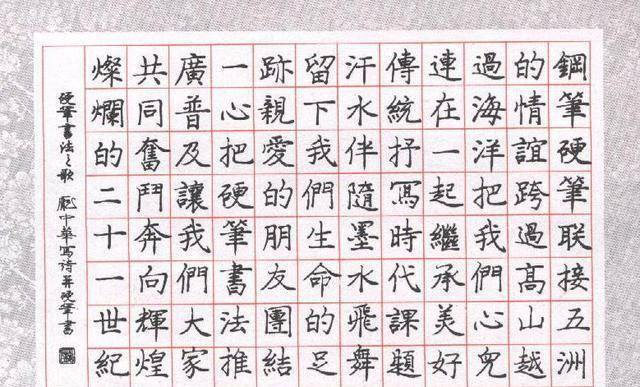 鋼筆硬筆聯接五洲
的情誼跨過高山越
過海洋把我們心兒
連在一起繼承美好
傳統抒寫時代課題
汗水伴隨墨水飛舞
留下我們生命的足
跡親愛的朋友團結
一心把硬筆書法推
廣普及讓我們大家
共同奮鬥奔向輝煌
燦爛的二十一世紀
硬筆書法之歌 龐中華寫詩并硬筆書